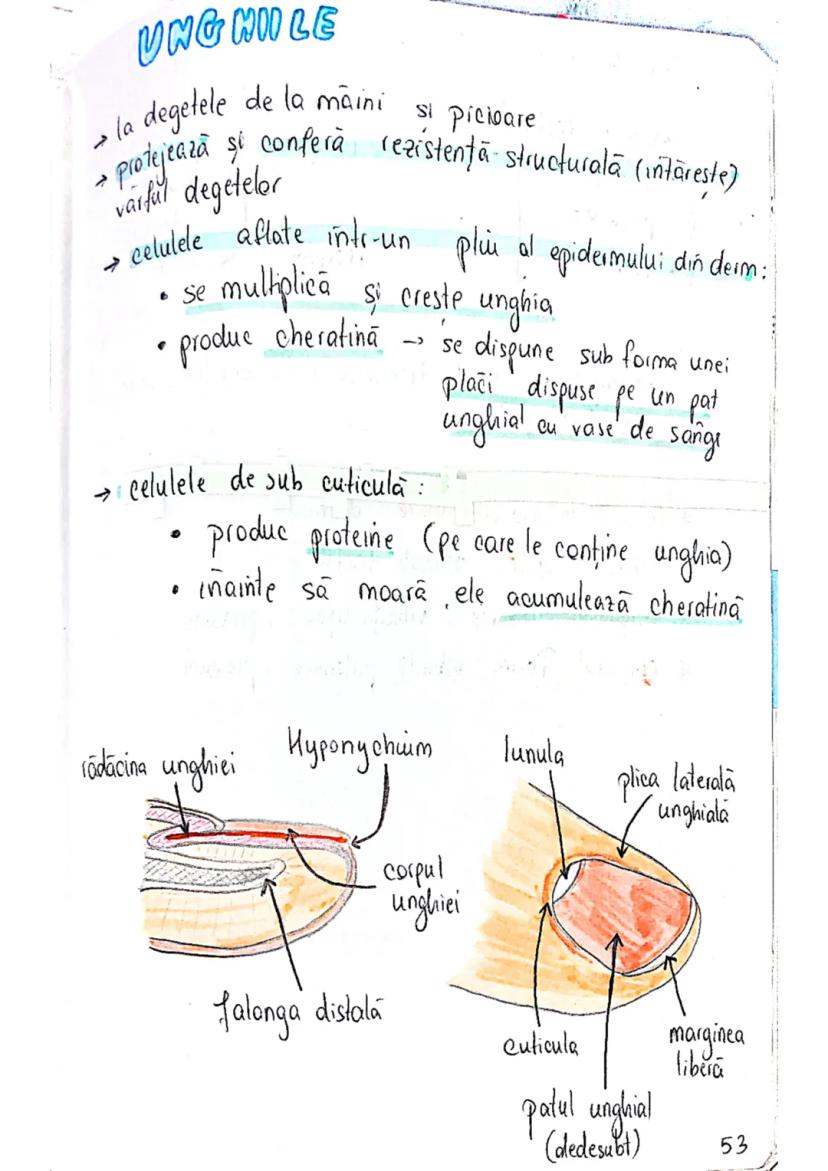 UNGHIILE
→ la degetele de la mâini și picioare
→ protejează și conferă rezistență structurală (întărește)
vârful degetelor
→ celulele aflate într-un pliu al epidermului din derm:
• se multiplică și crește unghia
• produc cheratină → se dispune sub forma unei
plăci dispuse pe un pat
unghial cu vase de sânge
→ celulele de sub cuticulă:
• produc proteine (pe care le conține unghia)
• înainte să moară, ele acumulează cheratină
rădăcina unghiei
Hyponychium
lunula
plica laterală
unghială
corpul
unghiei
falanga distală
cuticula
marginea
liberă
patul unghial
(dedesubt)
53